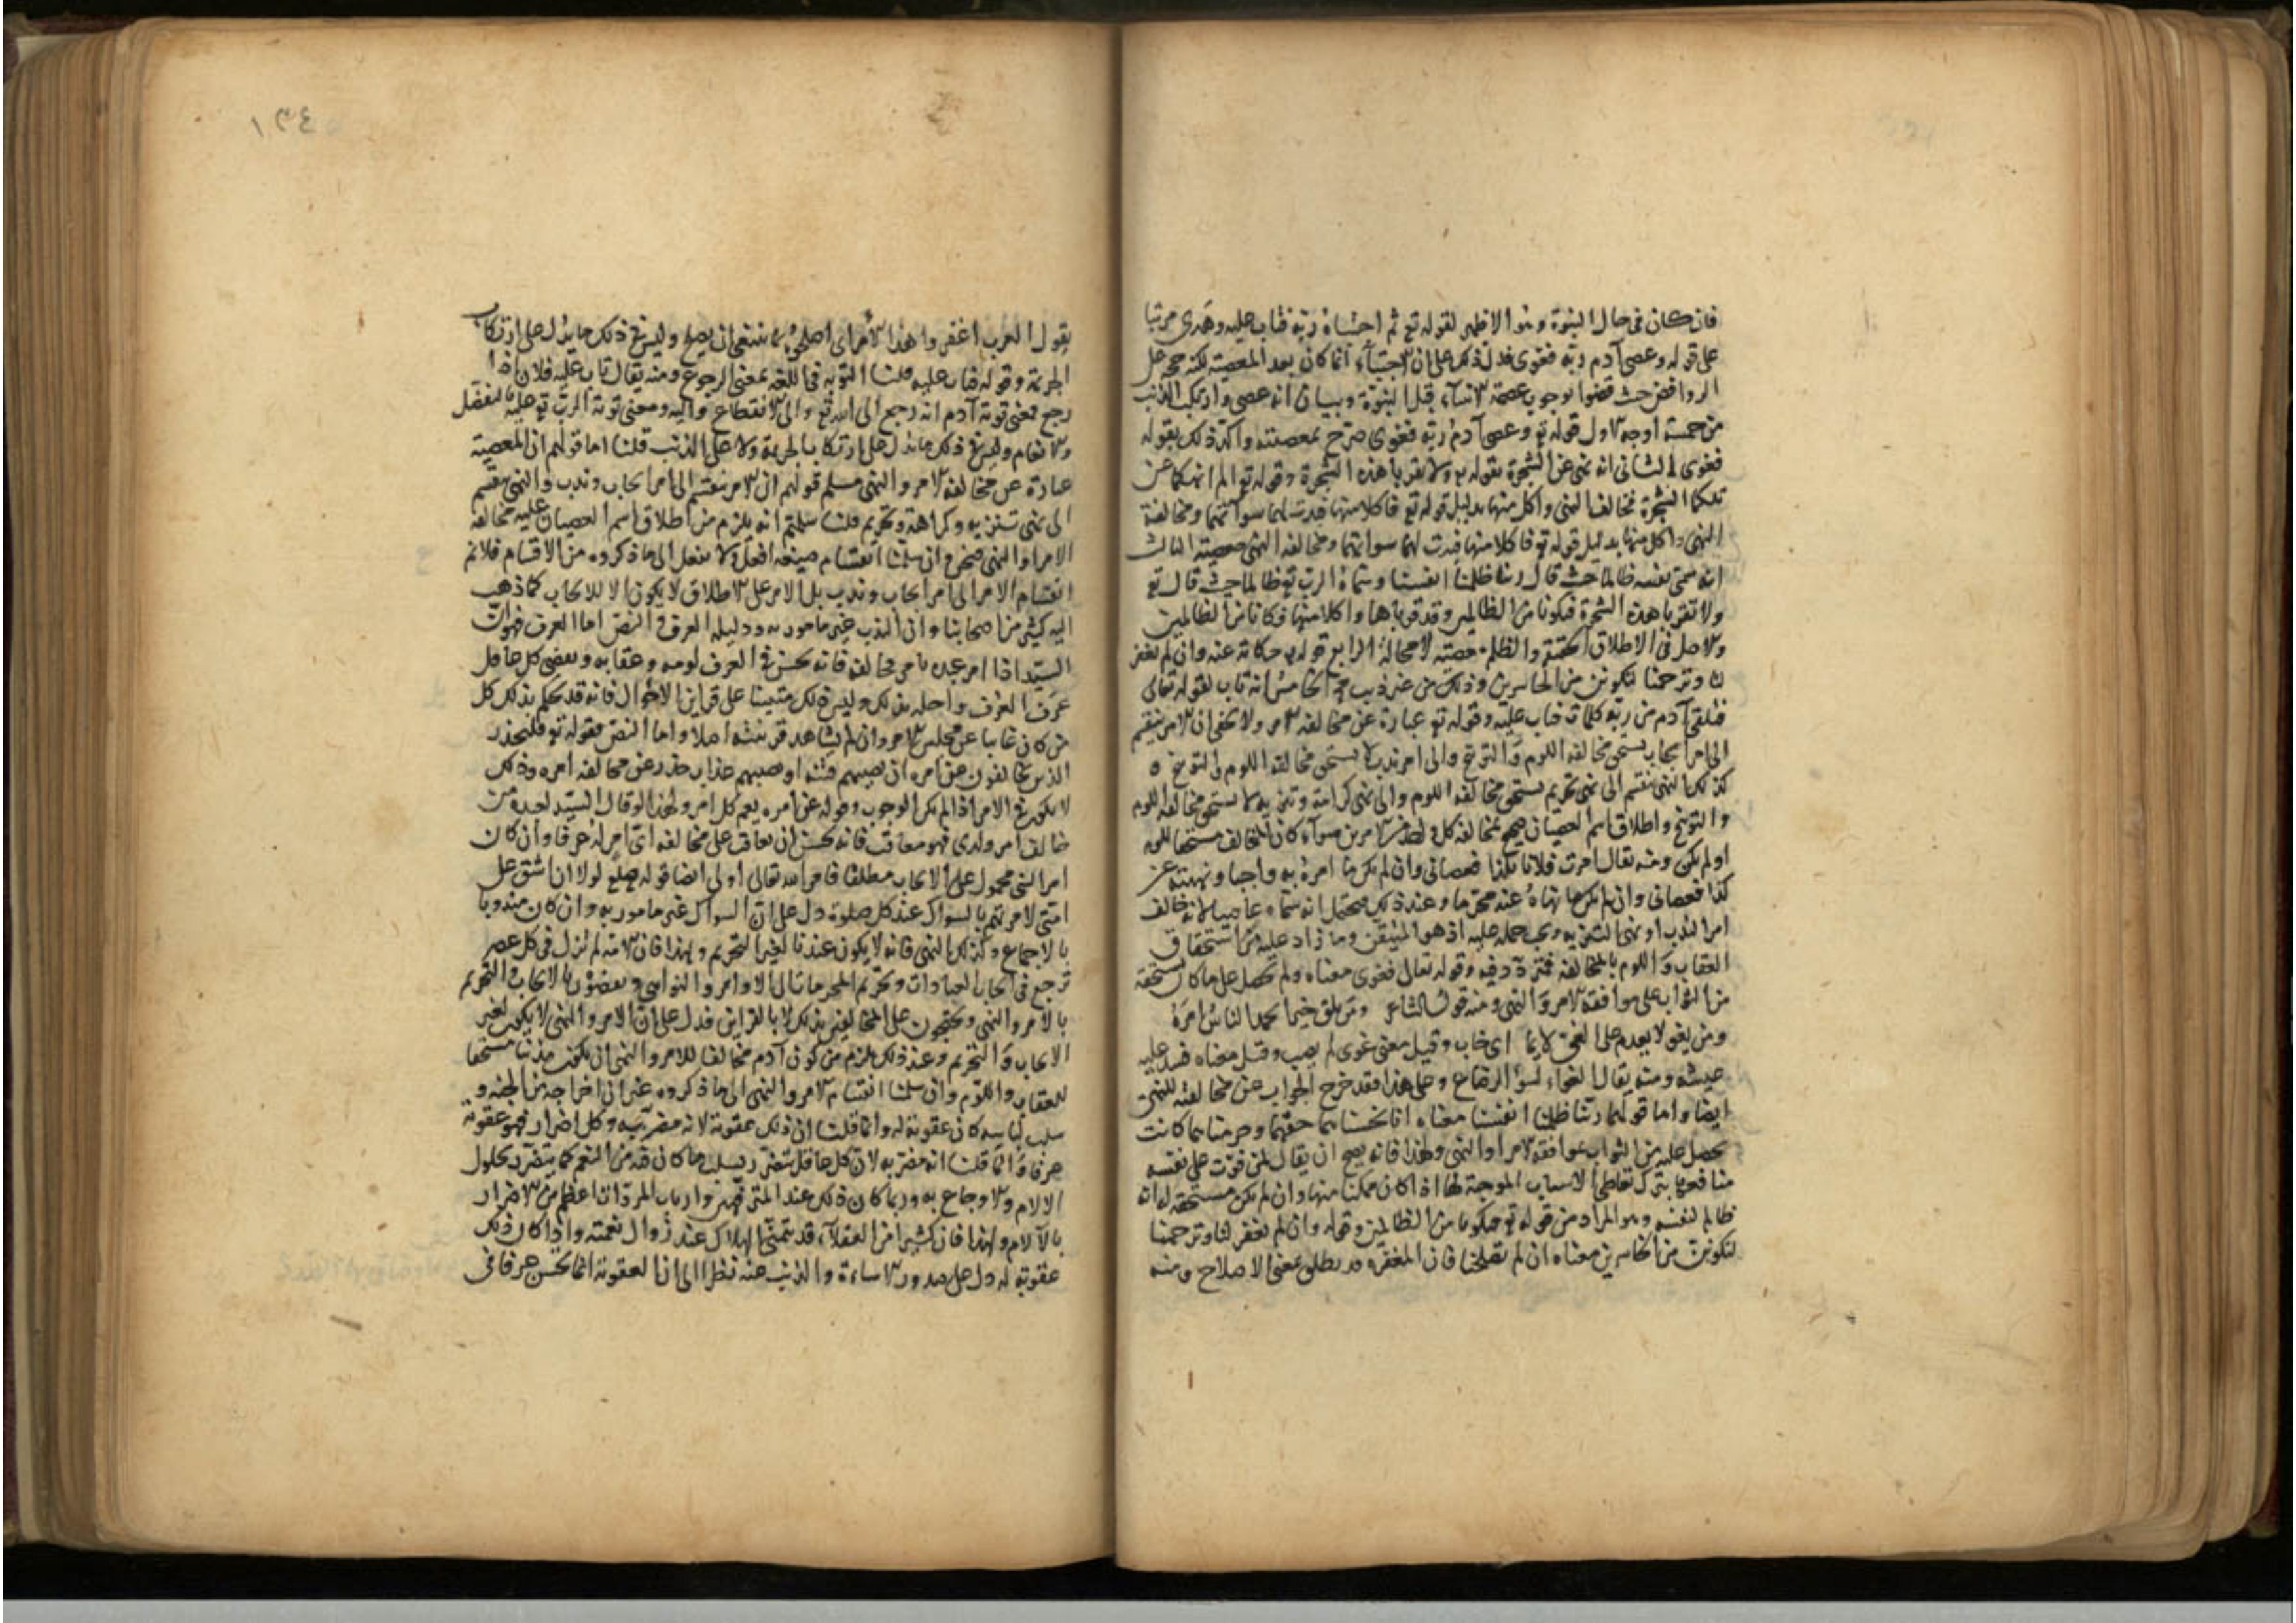 فان كان فى حال النبوة وهو الاظهر لقوله تع ثم اجتباه ربه فتاب عليه وهدى مرتبا
على قوله وعصى آدم ربه فغوى فدل ذلك على ان الاجتباء انما كان بعد المعصية لكنه حجة على
الروافض حيث قضوا بوجوب عصمة الانبياء قبل النبوة وبيان انه عصى وارتكب الذنب
من خمسة اوجه الاول قوله تع وعصى آدم ربه فغوى صرح بمعصيته واكد ذلك بقوله
فغوى الثانى انه نهى عن الشجرة بقوله تع ولا تقربا هذه الشجرة وقوله تع الم انهكما عن
تلكما الشجرة فخالف النهى واكل منها بدليل قوله تع فاكلا منها فبدت لهما سوآتهما ومخالفة
النهى واكل منها بدليل قوله تع فاكلا منها فبدت لهما سوآتهما ومخالفة النهى معصية الثالث
انه سمى نفسه ظالما حيث قال ربنا ظلمنا انفسنا وسماه الرب تع ظالما حيث قال تع
ولا تقربا هذه الشجرة فتكونا من الظالمين وقد قرباها واكلا منها فكانا من الظالمين
والاصل فى الاطلاق الحقيقة والظلم معصية لا محالة الرابع قوله تع حكاية عنه وان لم تغفر
لنا وترحمنا لنكونن من الخاسرين وذلك من غير ذنب مح الخامس انه تاب لقوله تعالى
فتلقى آدم من ربه كلمات فتاب عليه وقوله تع عبارة عن مخالفة الامر ولا يخفى ان الامر ينقسم
الى امر ايجاب يستحق مخالفه اللوم والتوبيخ والى امر ندب لا يستحق مخالفه اللوم والتوبيخ و
كذلك النهى ينقسم الى نهى تحريم يستحق مخالفه اللوم والى نهى كراهة وتنزيه لا يستحق مخالفه اللوم
والتوبيخ واطلاق اسم العصيان صحيح بمخالفة كل واحد من الامرين سواء كان المخالف مستحقا للوم
او لم يكن ومنه يقال امرت فلانا بكذا فعصانى وان لم يكن ما امره به واجبا ونهيته عن
كذا فعصانى وان لم يكن ما نهاه عنه محرما وعند ذلك فيحتمل انه سماه عاصيا لانه خالف
امر الندب او نهى التنزيه ويجب حمله عليه اذ هو المتيقن وما زاد عليه من استحقاق
العقاب واللوم بالمخالفة فمتردد فيه وقوله تعالى فغوى معناه ولم تحصل على ما كان يستحقه
من الثواب على موافقة الامر والنهى ومنه قول الشاعر ومن يلق خيرا يحمد الناس امره
ومن يغو لا يعدم على الغى لايما اى خاب وقيل معنى غوى لم يصب وقيل معناه فسد عليه
عيشه ومنه يقال الغواء لسوء الرضاع وعلى هذا فقد خرج الجواب عن مخالفته للنهى
ايضا واما قولهما ربنا ظلمنا انفسنا معناه انا بخسناهما حقهما وحرمناهما كانت
تحصل عليه من الثواب بموافقة الامر او النهى ولهذا فانه يصح ان يقال لمن فوت على نفسه
منافعها بترك تعاطى الاسباب الموجبة لها اذا كان ممكنا منها وان لم يكن مستحقه له انه
ظالم لنفسه وهو المراد من قوله تع فتكونا من الظالمين وقوله وان لم تغفر لنا وترحمنا
لنكونن من الخاسرين معناه ان لم تصلحنا فان المغفرة قد يطلق بمعنى الاصلاح ومنه
١٣٤
يقول العرب اغفروا هذا الامر اى اصلحوه بما ينبغى ان يصلح وليس فى ذلك ما يدل على ارتكاب
الجريمة وقوله فتاب عليه قلنا التوبة فى اللغة بمعنى الرجوع ومنه يقال تاب عليه فلان اذا
رجع فمعنى توبة آدم انه رجع الى الله تع والى الانقطاع اليه ومعنى توبة الرب تع عليه بالتفضل
والانعام وليس فى ذلك ما يدل على ارتكاب الجريمة ولا على الذنب قلنا اما قولهم ان المعصية
عبارة عن مخالفة الامر والنهى مسلم قولهم ان الامر ينقسم الى امر ايجاب وندب والنهى ينقسم
الى نهى تنزيه وكراهة وتحريم قلنا سلمتم انه يلزم من اطلاق اسم العصيان عليه مخالفة
الامر او النهى وان سلمنا انقسام صيغة افعل ولا تفعل الى ما ذكروه من الاقسام فلا نم
انقسام الامر الى امر ايجاب وندب بل الامر على الاطلاق لا يكون الا للايجاب كما ذهب
اليه كثير من اصحابنا وان الندب غير مأمور به ودليله العرف والنص اما العرف فهو ان
السيد اذا امر عبده بامر فخالفه فانه يحسن فى العرف لومه وعقابه ويقضى كل عاقل
عرف العرف واهله بذلك وليس ذلك مبنيا على قراين الاحوال فانه قد يحكم بذلك كل
من كان غايبا عن مجلس الامر وان لم يشاهد قرينة اصلا واما النص فقوله تع فليحذر
الذين يخالفون عن امره ان تصيبهم فتنة او يصيبهم عذاب حذر عن مخالفة امره وذلك
لا يكون فى الامر اذا لم يكن للوجوب وقوله عن امره يعم كل امر ولهذا لو قال السيد لعبده من
خالف امر ولدى فهو معاقب فانه يحسن ان يعاقب على مخالفة اى امر له عرفا وان كان
امر النبى محمول على الايجاب مطلقا فامر الله تعالى اولى ايضا قوله صلع لولا ان اشق على
امتى لامرتهم بالسواك عند كل صلوة دل على ان السواك غير مامور به وان كان مندوبا
بالاجماع وكذلك النهى فانه لا يكون عندنا لغير التحريم ولهذا فان الامة لم تزل فى كل عصر
ترجع فى ايجاب العبادات وتحريم المحرمات الى الاوامر والنواهى ويقضون بالايجاب والتحريم
بالامر والنهى ويحتجون على المخالفين بذلك لا بالقراين فدل على ان الامر والنهى لا يكون لغير
الايجاب والتحريم وعند ذلك يلزم من كون آدم مخالفا للامر والنهى ان يكون مذنبا مستحقا
للعقاب واللوم وان سلمنا انقسام الامر والنهى الى ما ذكروه غير ان اخراجه من الجنة و
سلب لباسه كان عقوبة له وانما قلنا ان ذلك عقوبة لانه مضر به وكل اضرار فهو عقوبة
عرفا وانما قلنا انه مضر به لان كل عاقل يتضرر بسلب ما كان فيه من النعم كما يتضرر بحلول
الالام والاوجاع به وربما كان ذلك عند المترفهين وارباب المروات اعظم من الاضرار
بالآلام ولهذا فان كثيرا من العقلاء قد يتمنى الهلاك عند زوال نعمته واذا كان ذلك
عقوبة له دل على صدور الاساءة والذنب عنه نظرا الى ان العقوبة انما تحسن عرفا فى